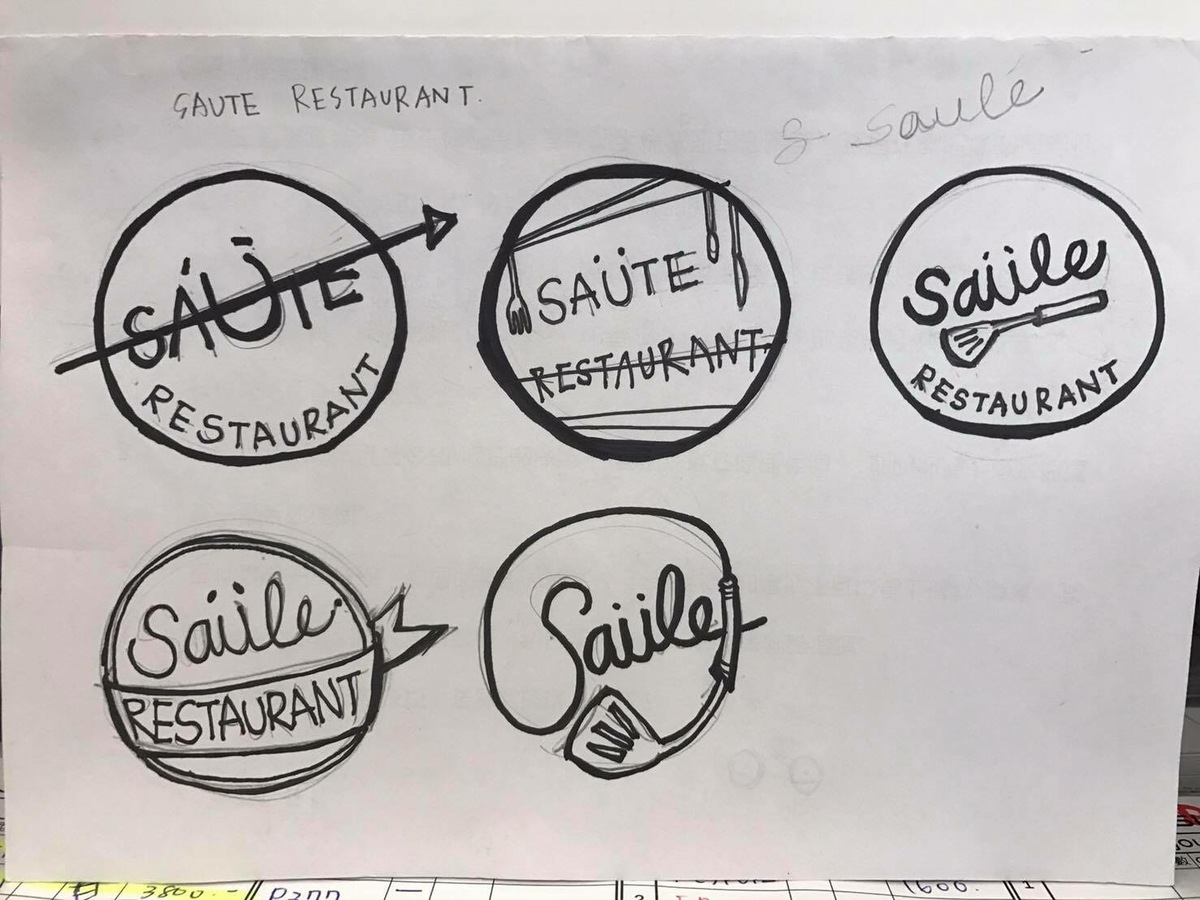 SAUTE RESTAURANT.
S saulé
SÁŪTE
RESTAURANT
SAÜTE
RESTAURANT
Saüle
RESTAURANT
Saüle
RESTAURANT
Saüle
3800.-
1600.
1